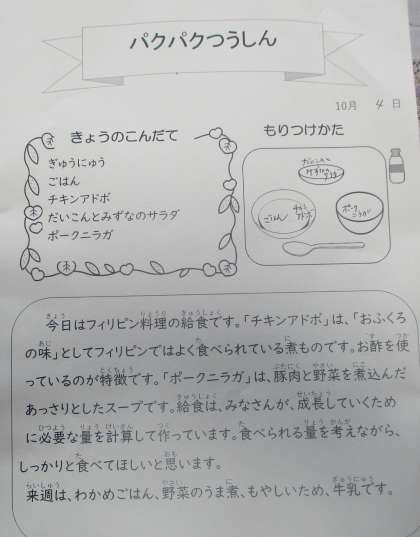 パクパクつうしん
10月 4 日
きょうのこんだて
ぎゅうにゅう
ごはん
チキンアドボ
だいこんとみずなのサラダ
ポークニラガ
もりつけかた
だいこんと
みずなの
サラダ
ごはん
チキン
アドボ
ポーク
ニラガ
今日はフィリピン料理の給食です。「チキンアドボ」は、「おふくろ
の味」としてフィリピンではよく食べられている煮ものです。お酢を使
っているのが特徴です。「ポークニラガ」は、豚肉と野菜を煮込んだ
あっさりとしたスープです。給食は、みなさんが、成長していくため
に必要な量を計算して作っています。食べられる量を考えながら、
しっかりと食べてほしいと思います。
来週は、わかめごはん、野菜のうま煮、もやしいため、牛乳です。